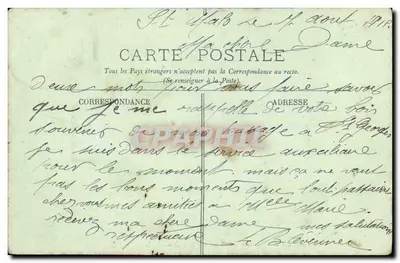 St Malo le 17 aout 1915
Ma chere Dame
CARTE POSTALE
Tous les Pays étrangers n'acceptent pas la Correspondance au recto.
(Se renseigner à la Poste).
Deux mots pour vous faire savoir
CORRESPONDANCE ADRESSE
que je me de votre bon
souvenir de mon passage à St Georges
je suis dans le service auxiliaire
pour le moment mais ca ne vaut
pas les bons moments que l'on passait
chez vous mes amities a Melle Marie
recevez ma chere Dame mes salutations
respectueuses